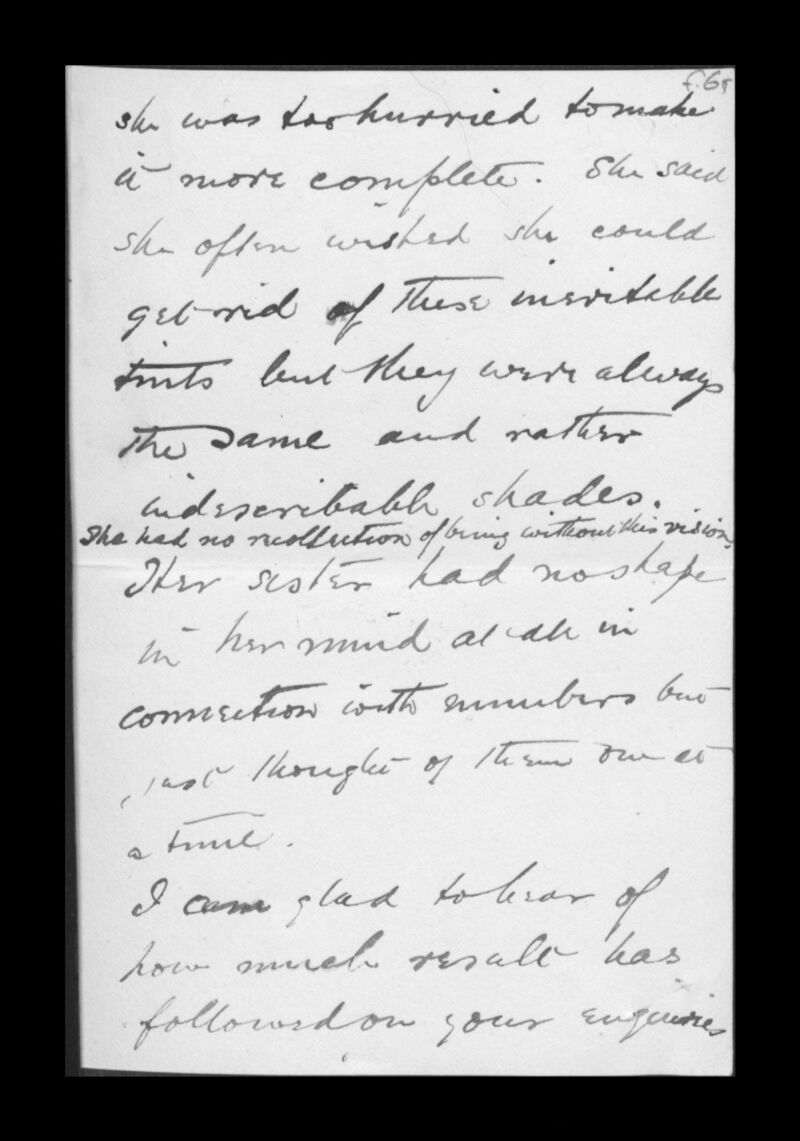 f.65
she was too hurried to make
it more complete. She said
she often wished she could
get rid of these inevitable
tints but they were always
the same and rather
indescribable shades.
She had no recollection of being without this vision.
Her sister had no shape
in her mind at all in
connection with numbers but
just thought of them one at
a time.
I am glad to hear of
how much result has
followed on your enquiries